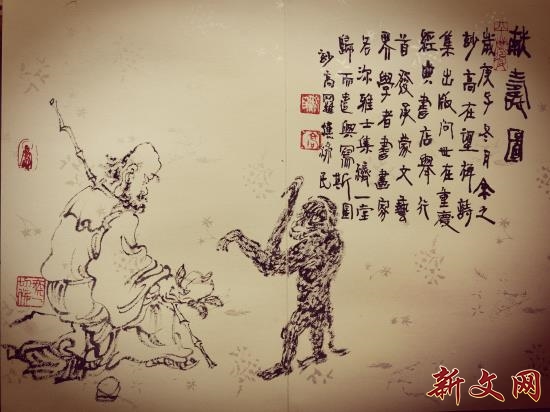 献壽圖
歲庚子冬月余之
妙高在望祥詩
集出版问世在重慶
經典書店舉行
首發承蒙文藝
界學者書畫家
名流雅士集濟一堂
歸而遣興寫斯圖
妙高羅
民
新文网